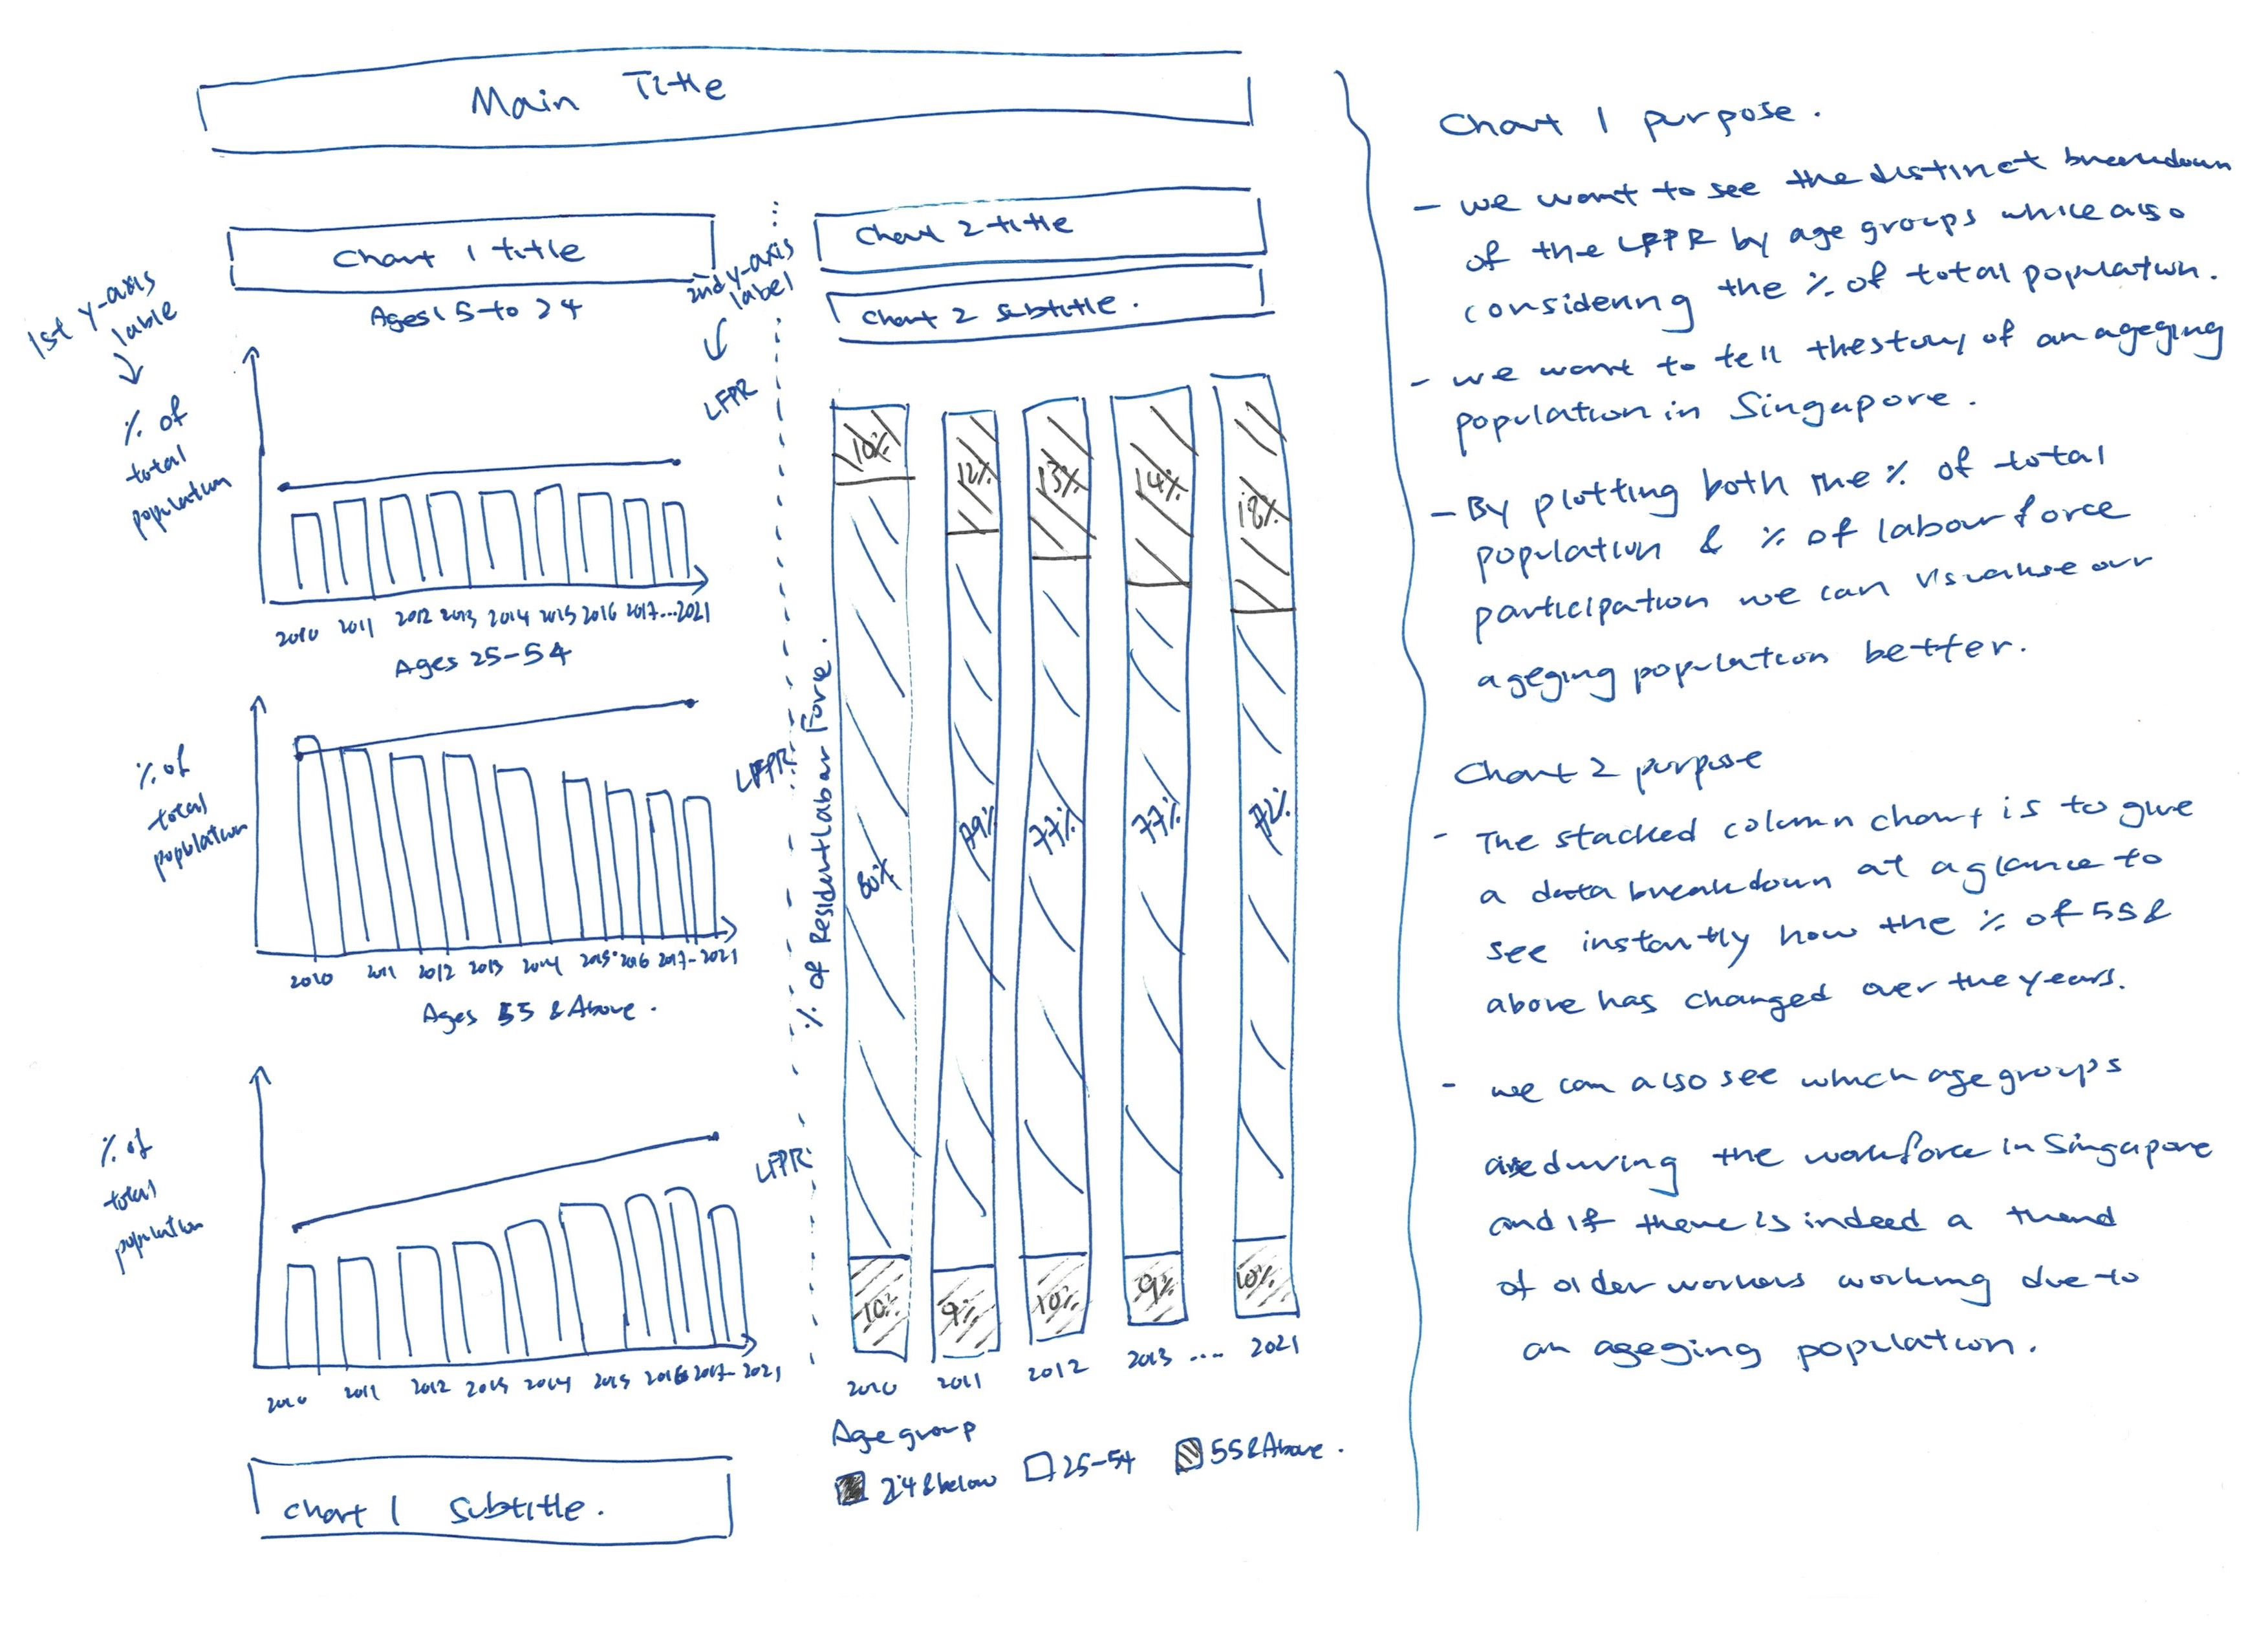 Main Title
Chart 1 title
1st y-axis
lable
2nd y-axis
label
Ages 15 to 24
% of
total
population
LFPR
2010 2011 2012 2013 2014 2015 2016 2017...2021
Ages 25-54
% of
total
population
LFPR
2010 2011 2012 2013 2014 2015 2016 2017-2021
Ages 55 & Above.
% of
total
population
LFPR
2010 2011 2012 2013 2014 2015 2016 2017-2021
Chart 1 Subtitle.
Chart 2 title
Chart 2 subtitle.
% of Resident Labar Force.
10% 12% 13% 14% 18%
80% 79% 77% 77% 72%
10% 9% 10% 9% 10%
2010 2011 2012 2013 .... 2021
Age group
24 & below 25-54 55 & Above.
Chart 1 purpose.
- we want to see the distinct breakdown
of the LFPR by age groups while also
considering the % of total population.
- we want to tell the story of an ageging
population in Singapore.
- By plotting both the % of total
population & % of labour force
participation we can visualise our
ageging population better.
Chart 2 purpose
- The stacked column chart is to give
a data breakdown at a glance to
see instantly how the % of 55 &
above has changed over the years.
- we can also see which age groups
during the workforce in Singapore
and if there is indeed a trend
of older workers working due to
an ageging population.